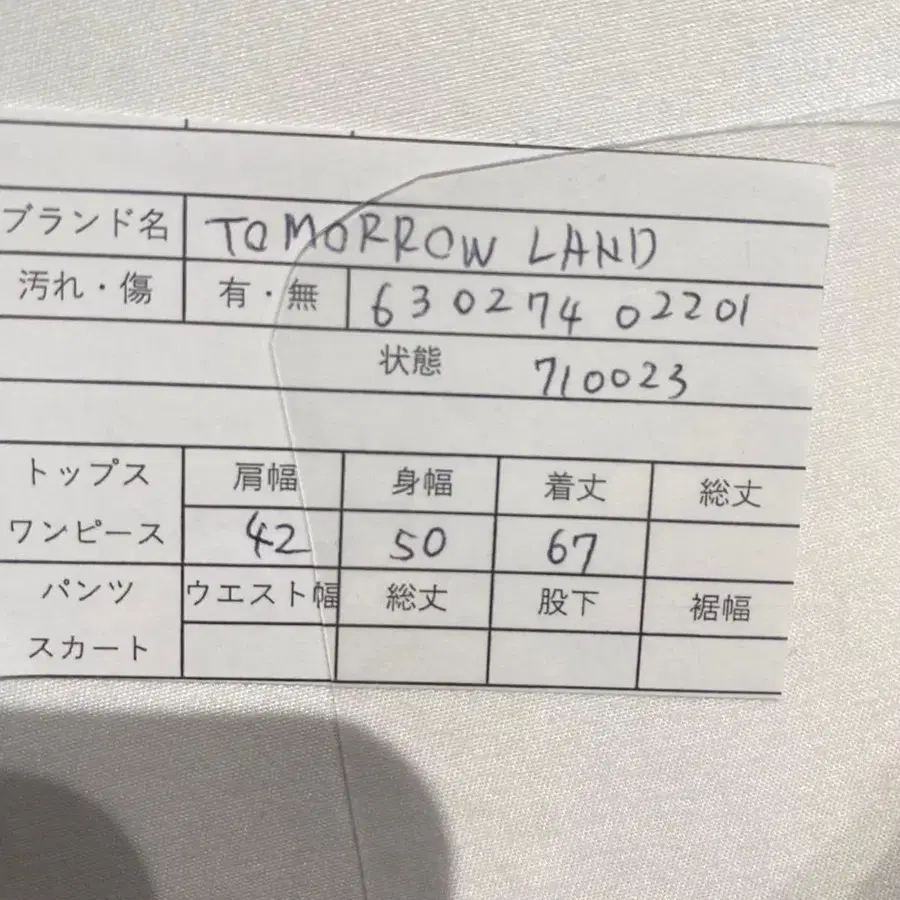 ブランド名 TOMORROW LAND
汚れ・傷 有・無 63027402201
状態 710023
トップス 肩幅 身幅 着丈 総丈
ワンピース 42 50 67
パンツ ウエスト幅 総丈 股下 裾幅
スカート